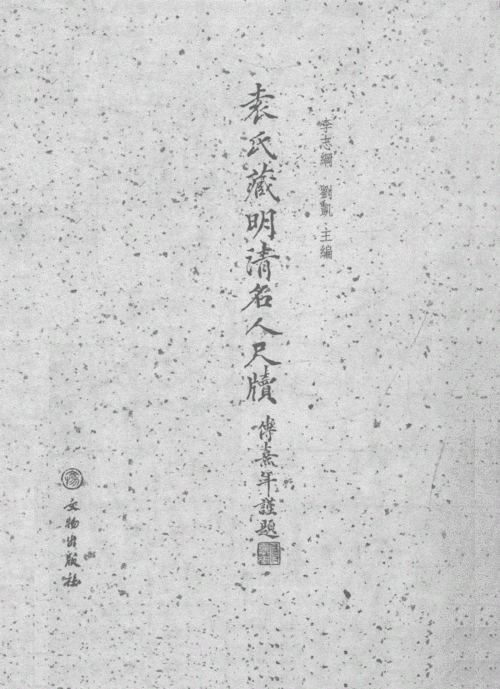 李志綱 劉凱 主編
袁氏藏明清名人尺牘
傅熹年謹題
文物出版社